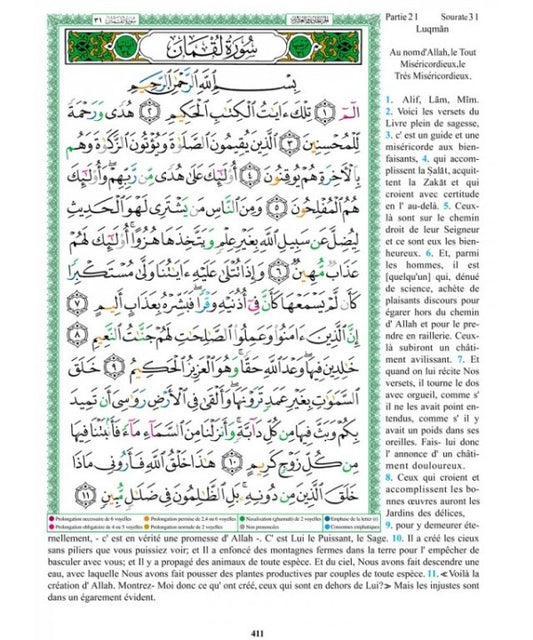 سورة لقمان
٣١
Partie 21 Sourate 31
Luqmān
سُورَةُ لُقْمَانَ
بِسْمِ ٱللَّهِ ٱلرَّحْمَٰنِ ٱلرَّحِيمِ
الٓمٓ ١ تِلْكَ ءَايَٰتُ ٱلْكِتَٰبِ ٱلْحَكِيمِ ٢ هُدًى وَرَحْمَةً
لِّلْمُحْسِنِينَ ٣ ٱلَّذِينَ يُقِيمُونَ ٱلصَّلَوٰةَ وَيُؤْتُونَ ٱلزَّكَوٰةَ وَهُم
بِٱلْءَاخِرَةِ هُمْ يُوقِنُونَ ٤ أُو۟لَٰٓئِكَ عَلَىٰ هُدًى مِّن رَّبِّهِمْ ۖ وَأُو۟لَٰٓئِكَ
هُمُ ٱلْمُفْلِحُونَ ٥ وَمِنَ ٱلنَّاسِ مَن يَشْتَرِى لَهْوَ ٱلْحَدِيثِ
لِيُضِلَّ عَن سَبِيلِ ٱللَّهِ بِغَيْرِ عِلْمٍ وَيَتَّخِذَهَا هُزُوًا ۚ أُو۟لَٰٓئِكَ لَهُمْ
عَذَابٌ مُّهِينٌ ٦ وَإِذَا تُتْلَىٰ عَلَيْهِ ءَايَٰتُنَا وَلَّىٰ مُسْتَكْبِرًا
كَأَن لَّمْ يَسْمَعْهَا كَأَنَّ فِىٓ أُذُنَيْهِ وَقْرًا ۖ فَبَشِّرْهُ بِعَذَابٍ أَلِيمٍ ٧
إِنَّ ٱلَّذِينَ ءَامَنُوا۟ وَعَمِلُوا۟ ٱلصَّٰلِحَٰتِ لَهُمْ جَنَّٰتُ ٱلنَّعِيمِ ٨
خَٰلِدِينَ فِيهَا ۖ وَعْدَ ٱللَّهِ حَقًّا ۚ وَهُوَ ٱلْعَزِيزُ ٱلْحَكِيمُ ٩ خَلَقَ
ٱلسَّمَٰوَٰتِ بِغَيْرِ عَمَدٍ تَرَوْنَهَا ۖ وَأَلْقَىٰ فِى ٱلْأَرْضِ رَوَٰسِىَ أَن تَمِيدَ
بِكُمْ وَبَثَّ فِيهَا مِن كُلِّ دَآبَّةٍ ۚ وَأَنزَلْنَا مِنَ ٱلسَّمَآءِ مَآءً فَأَنۢبَتْنَا فِيهَا
مِن كُلِّ زَوْجٍ كَرِيمٍ ١٠ هَٰذَا خَلْقُ ٱللَّهِ فَأَرُونِى مَاذَا
خَلَقَ ٱلَّذِينَ مِن دُونِهِۦ ۚ بَلِ ٱلظَّٰلِمُونَ فِى ضَلَٰلٍ مُّبِينٍ ١١
Prolongation necessaire de 6 voyelles
Prolongation permise de 2,4 ou 6 voyelles
Nasalisation (ghunnah) de 2 voyelles
Emphase de la lettre (r)
Prolongation obligatoire de 4 ou 5 voyelles
Prolongation normale de 2 voyelles
Non prononcées
Consonnes emphatiques
Au nom d'Allah, le Tout
Miséricordieux, le
Très Miséricordieux.
1. Alif, Lām, Mīm.
2. Voici les versets du
Livre plein de sagesse,
3. c' est un guide et une
miséricorde aux bien-
faisants, 4. qui accom-
plissent la Ṣalāt, acquit-
tent la Zakāt et qui
croient avec certitude
en l' au-delà. 5. Ceux-
là sont sur le chemin
droit de leur Seigneur
et ce sont eux les bien-
heureux. 6. Et, parmi
les hommes, il est
[quelqu'un] qui, dénué
de science, achète de
plaisants discours pour
égarer hors du chemin
d' Allah et pour le pre-
ndre en raillerie. Ceux-
là subiront un châti-
ment avilissant. 7. Et
quand on lui récite Nos
versets, il tourne le dos
avec orgueil, comme s'
il ne les avait point en-
tendus, comme s' il y
avait un poids dans ses
oreilles. Fais- lui donc
l' annonce d' un châti-
ment douloureux.
8. Ceux qui croient et
accomplissent les bo-
nnes œuvres auront les
Jardins des délices,
9. pour y demeurer éte-
rnellement, - c' est en vérité une promesse d' Allah -. C' est Lui le Puissant, le Sage. 10. Il a créé les cieux
sans piliers que vous puissiez voir; et Il a enfoncé des montagnes fermes dans la terre pour l' empêcher de
basculer avec vous; et Il y a propagé des animaux de toute espèce. Et du ciel, Nous avons fait descendre une
eau, avec laquelle Nous avons fait pousser des plantes productives par couples de toute espèce. 11. «Voilà la
création d' Allah. Montrez- Moi donc ce qu' ont créé, ceux qui sont en dehors de Lui?» Mais les injustes sont
dans un égarement évident.
411